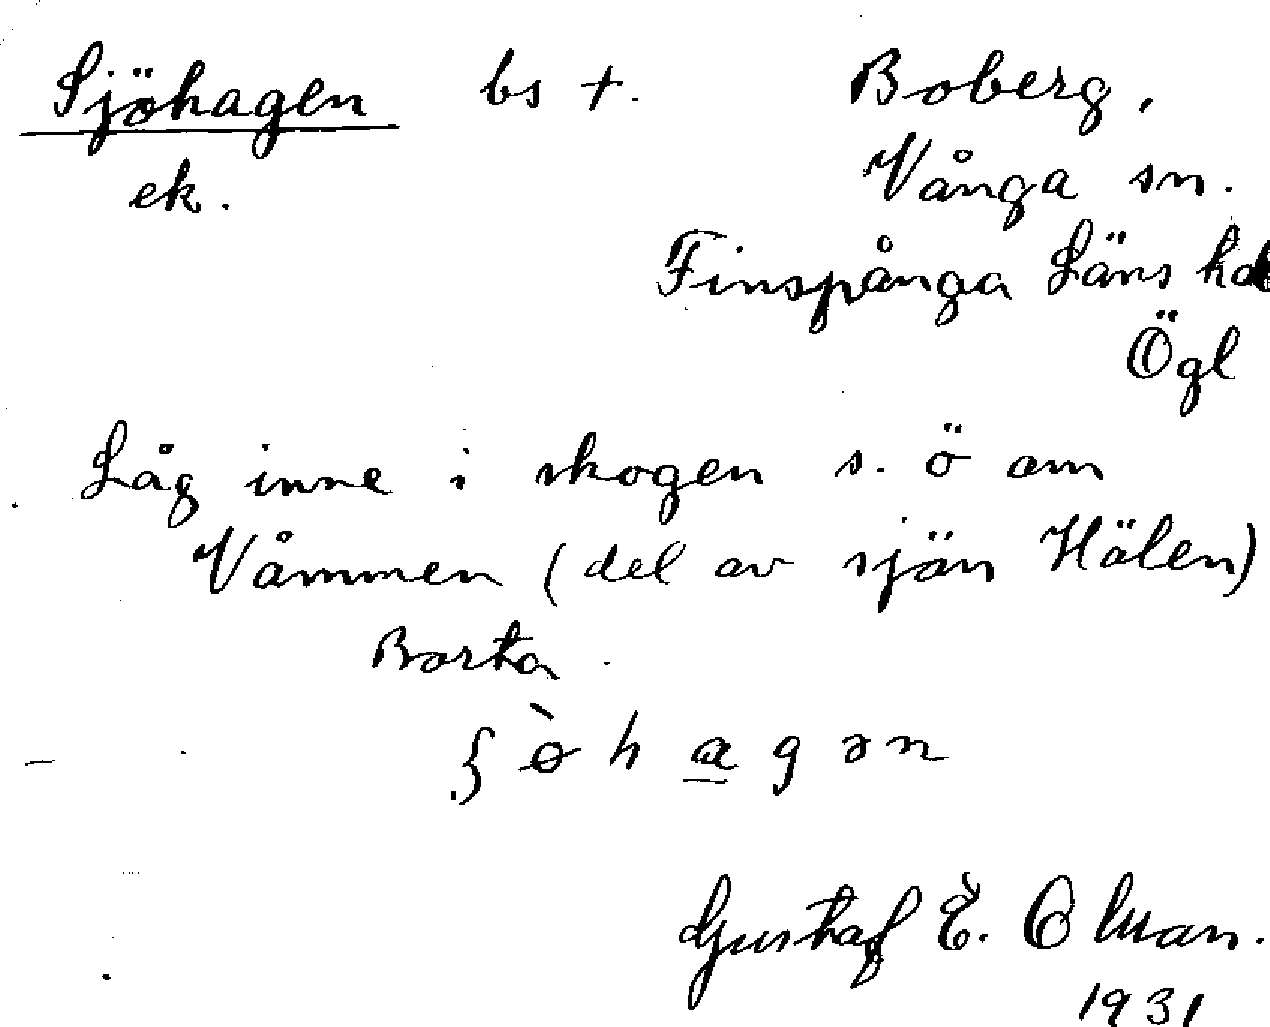 Sjöhagen bs +. Boberg,
ek. Vånga sn.
Finspånga Läns hd
Ögl
Låg inne i skogen s. ö om
Våmmen (del av sjön Hälen)
Borta
ʃ ὸ h a g ə n
Gustaf E.
1931